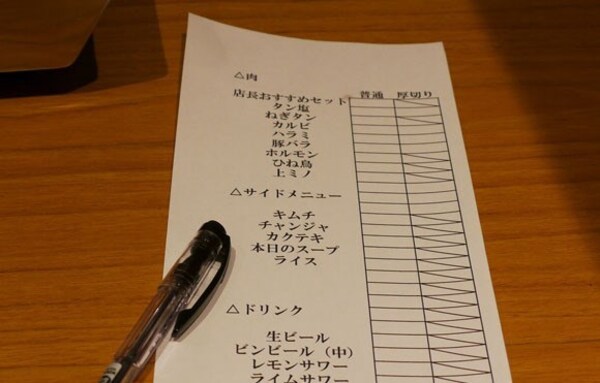 △肉
普通 厚切り
店長おすすめセット
タン塩
ねぎタン
カルビ
ハラミ
豚バラ
ホルモン
ひね鳥
上ミノ
△サイドメニュー
キムチ
チャンジャ
カクテキ
本日のスープ
ライス
△ドリンク
生ビール
ビンビール（中）
レモンサワー
ライムサワー